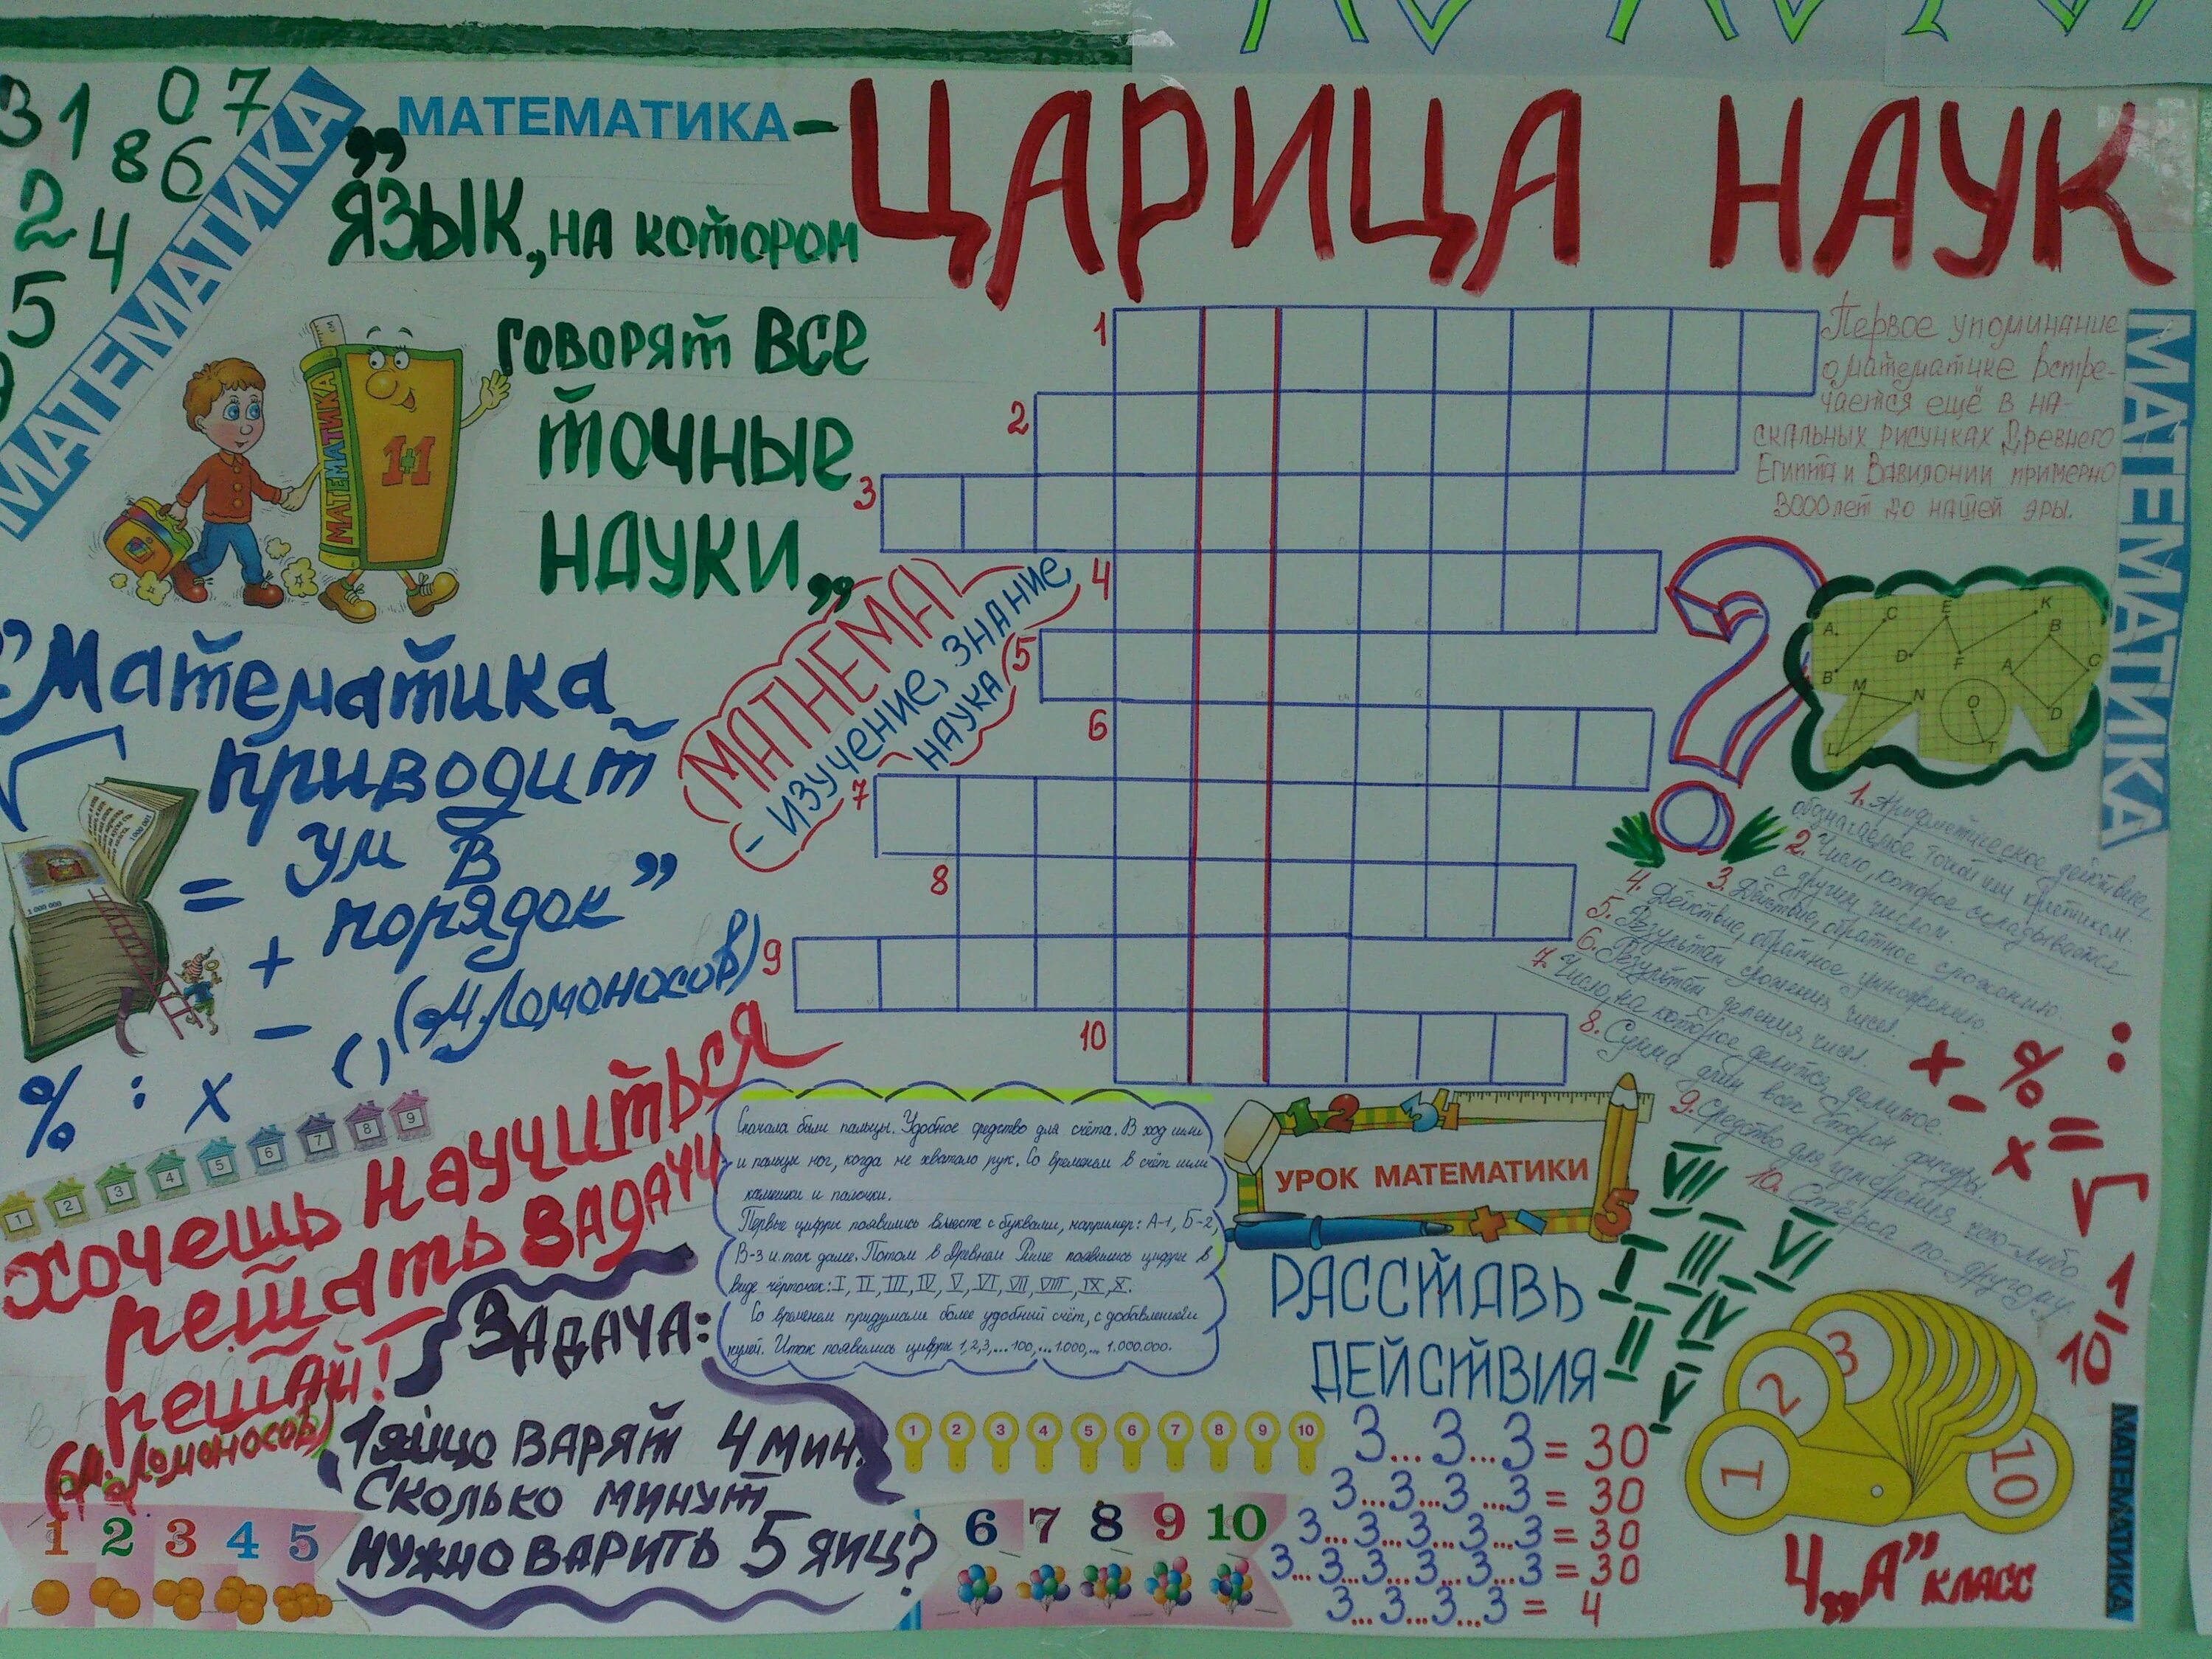 3 1 0 7
8 6
2 4
5
МАТЕМАТИКА
МАТЕМАТИКА - ЦАРИЦА НАУК
„ЯЗЫК, НА КОТОРОМ
ГОВОРЯТ ВСЕ
ТОЧНЫЕ
НАУКИ„
МАТЕМАТИКА
1+1
"Математика
приводит
ум в
порядок"
(М.Ломоносов)
1 000 001
1 000 000
√
=
+
-
( )
% : х
MATHEMA
- ИЗУЧЕНИЕ, ЗНАНИЕ,
НАУКА
1
2
3
4
5
6
7
8
9
10
Первое упоминание
о математике встре-
чается ещё в на-
скальных рисунках Древнего
Египта и Вавилонии примерно
3000 лет до нашей эры.
МАТЕМАТИКА
?
A C E K
B D F A B C
M N O D
L T
1. Арифметическое действие,
обозначаемое точкой или крестиком.
2. Число, которое складывается
с другим числом.
3. Действие, обратное сложению.
4. Действие, обратное умножению.
5. Результат сложения чисел.
6. Результат деления чисел.
7. Число, на которое делится делимое.
8. Сумма длин всех сторон фигуры.
9. Средство для измерения чего-либо
10. Стёрка по-другому.
+ % :
- =
х √
1/10
1 2 3 4 5 6 7 8 9
ХОЧЕШЬ НАУЧИТЬСЯ
РЕШАТЬ ЗАДАЧИ
РЕШАЙ!
(М.Ломоносов)
Сначала были пальцы. Удобное средство для счёта. В ход шли
и пальцы ног, когда не хватало рук. Со временем в счёт шли
камешки и палочки.
Первые цифры появились вместе с буквами, например: А-1, Б-2,
В-3 и так далее. Потом в Древнем Риме появились цифры в
виде чёрточек: I, II, III, IV, V, VI, VII, VIII, IX, X.
Со временем придумали более удобный счёт, с добавлением
нулей. И так появились цифры 1,2,3,... 100,... 1.000,... 1.000.000.
1 2 3 4
УРОК МАТЕМАТИКИ
5
VII
I III VI
II IV
V
ЗАДАЧА:
1 яйцо ВАРЯТ 4 мин.
Сколько минут
нужно варить 5 яиц?
1 2 3 4 5
1 2 3 4 5 6 7 8 9 10
6 7 8 9 10
РАССТАВЬ
ДЕЙСТВИЯ
3...3...3 = 30
3...3...3...3 = 30
3...3...3...3...3 = 30
3...3...3...3...3...3 = 30
3...3...3...3 = 4
1 2 3 10
4 „А" класс
МАТЕМАТИКА